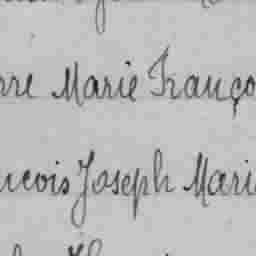 rre Marie Franço
ncois Joseph Mari